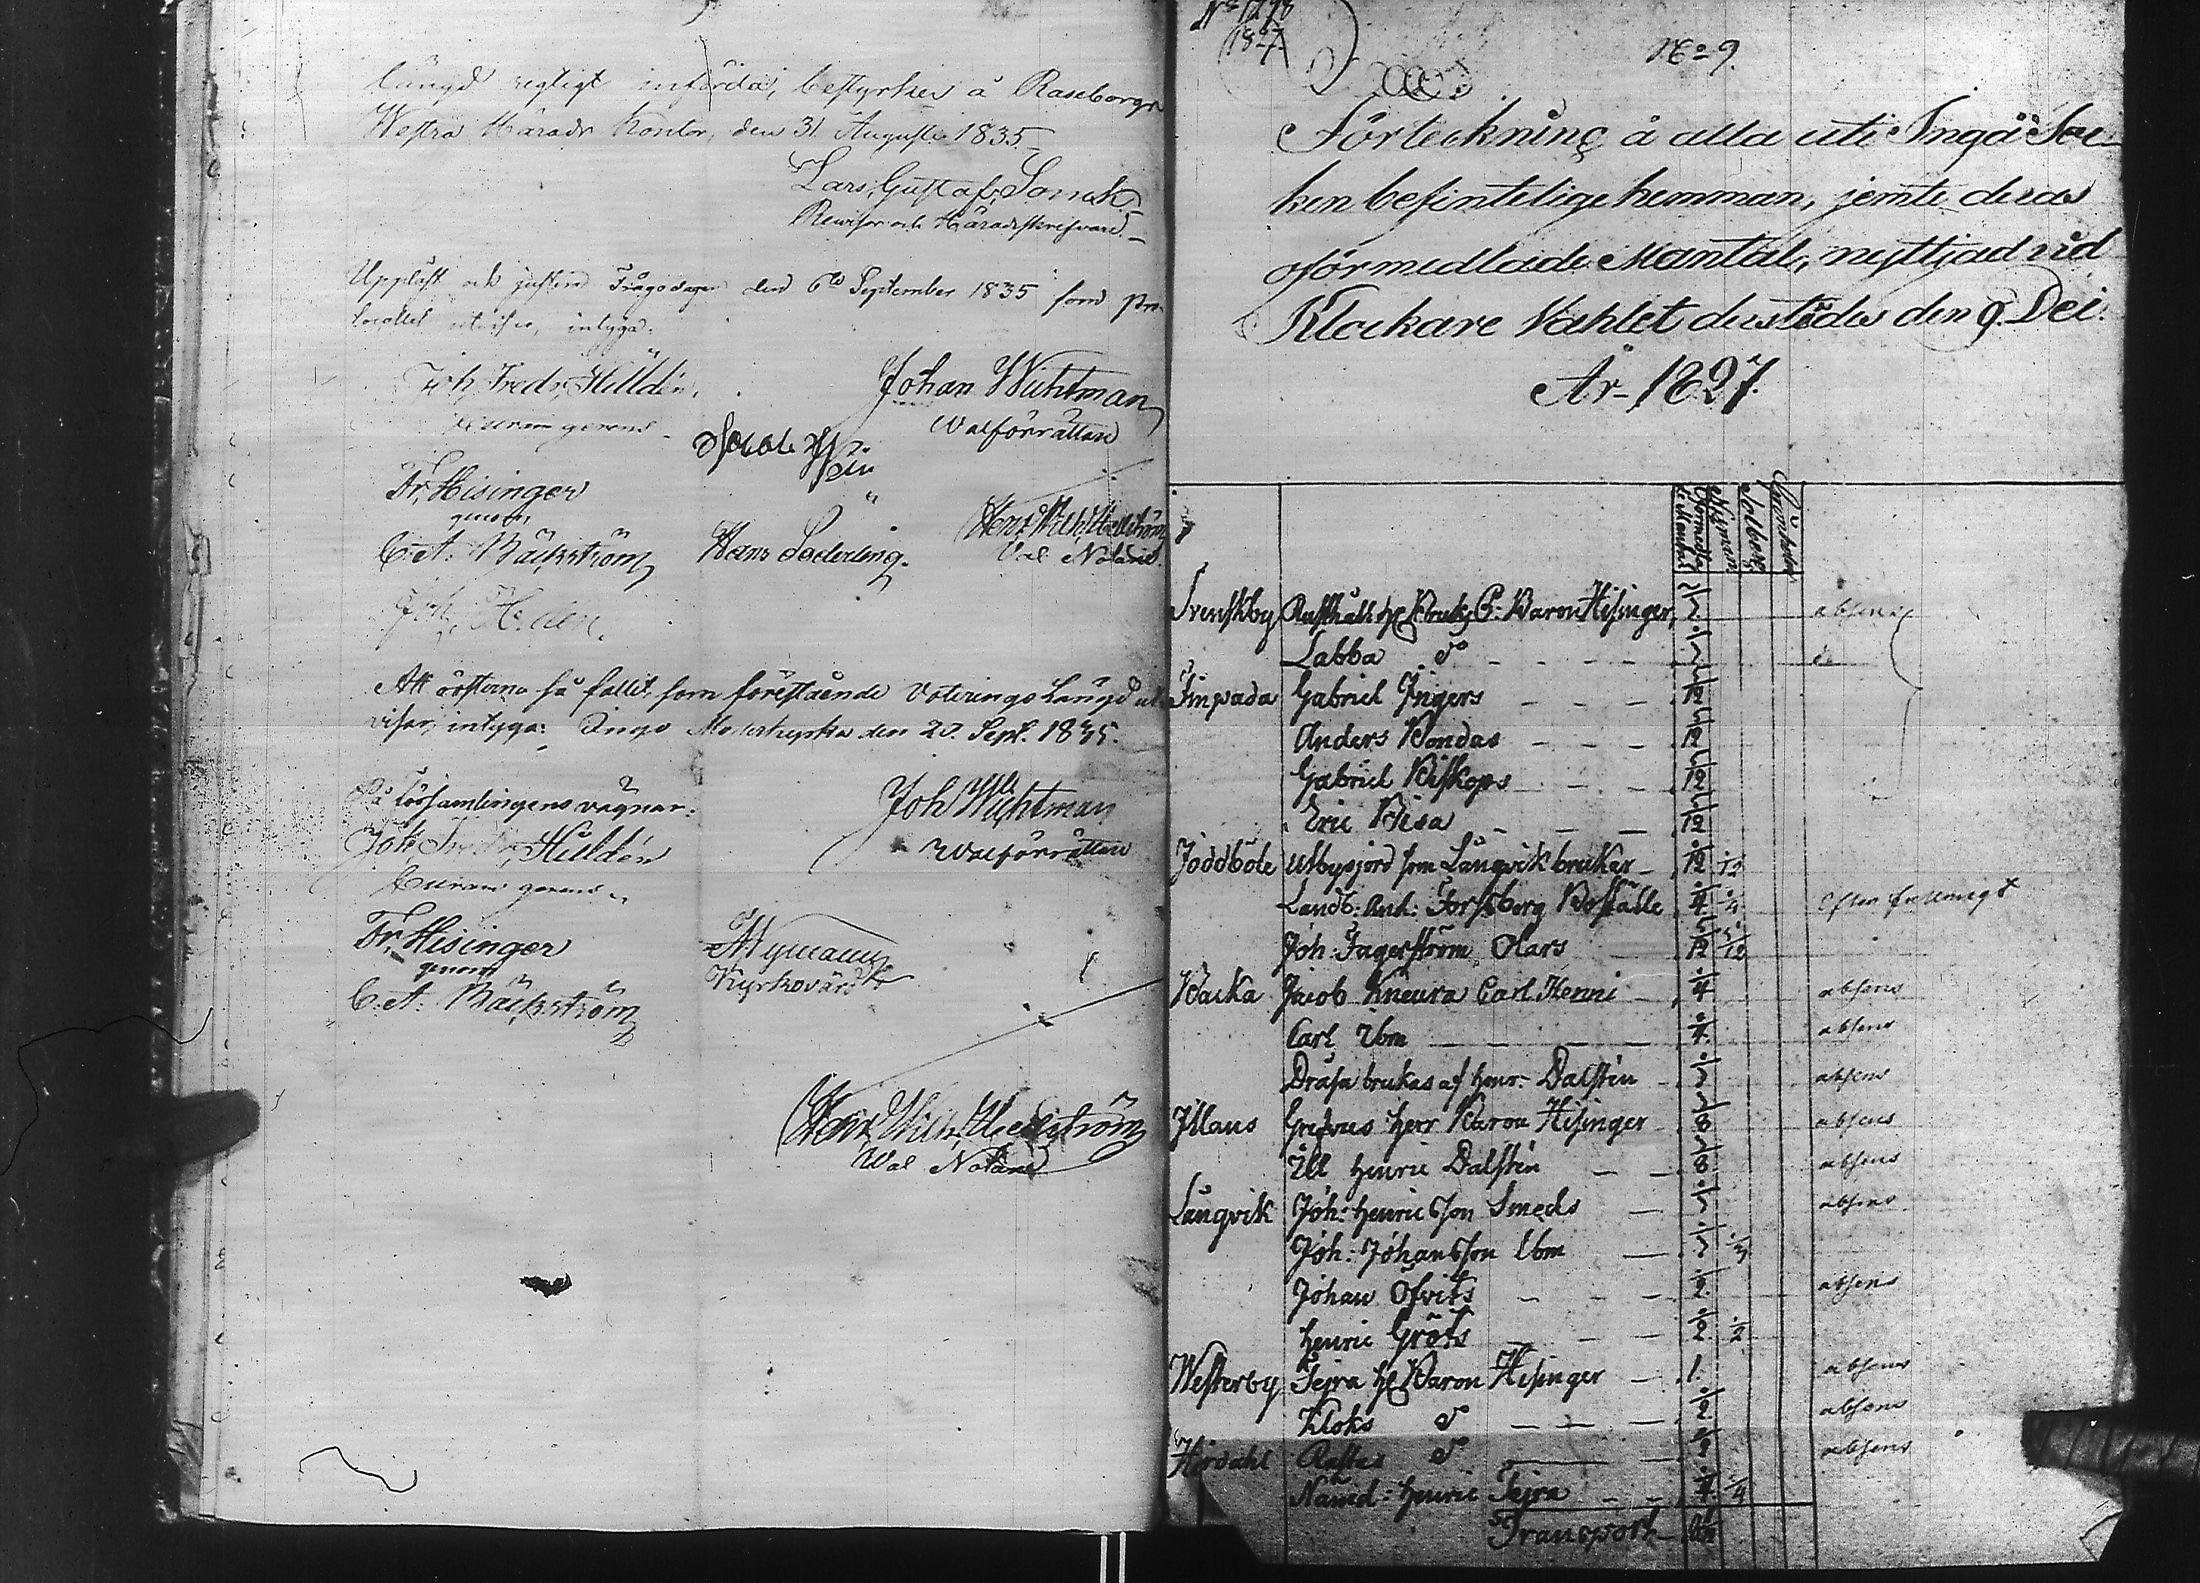 längd rigtigt införda, bestyrkes å Raseborgs
Westra Härads Kontor, den 31 Augusti 1835.
Lars Gustaf Sonck
Revisor och Häradsskrifvare.
Uppläst och justerad den 6te September 1835 som pro-
tocollet utvisar, intyga:
Joh. Fredr. Hulldén.
Curam gerens
Johan Wichtman
Valförrättare
Fr. Hisinger
genom
C. A. Bäckström
Hans Söderling.
Henr. Wilh. Hellström
Val Notarie.
Att rösterna så fallit som förestående Voterings Längd ut-
visar, intyga: Ingo Moderkyrka den 20. Sept. 1835.
På Församlingens vägnar:
Joh. Fredr. Hulldén
Curam gerens
Joh Wichtman
Valförrättare
Fr. Hisinger
genom
C. A. Bäckström
Nymann
Kyrkovärd
Henr. Wilh. Hellström
Val Notarie
1827
No 9.
Förteckning å alla uti Ingå Soc-
ken befintelige hemman, jemte deras
förmedlade Mantal, nyttjad vid
Klockare Vahlet derstädes den 9. Dec.
År 1827.
Förmedlade Mantal
Nyman
Solberg
Grönholm
Svenskby Rusthåll H. Bruks P. Baron Hisinger, absens
Labba do
Finpada Gabriel Ingers 1/12
Anders Bondas 1/12
Gabriel Biskops 1/12
Eric Bisa 1/12
Joddböle Utbysjord som Långvik brukar 1/12 1/12
Landt: Ank: Forsberg Boställe 1/4 1/4 efter fullmagt
Joh: Jagerström Olars 5/12 5/12
Backa Jacob Kneura Carl Henri 1/4 absens
Carl Ibm 1/4 absens
Dräsa brukas af Henr. Dalstén absens
Illans Grefvus Herr Baron Hisinger absens
Ill Henric Dalstén absens
Långvik Joh: Henricsson Smeds absens
Joh: Johansson Ibm
Johan Öfvits 1/2 absens
Henric Gröts 1/2 1/2
Westerby Tejra H. Baron Hisinger 1. absens
Kloks do 1/2 absens
Hirdahl Rastas do absens
Nämd: Henric Tejra 1/4 1/4
Transport